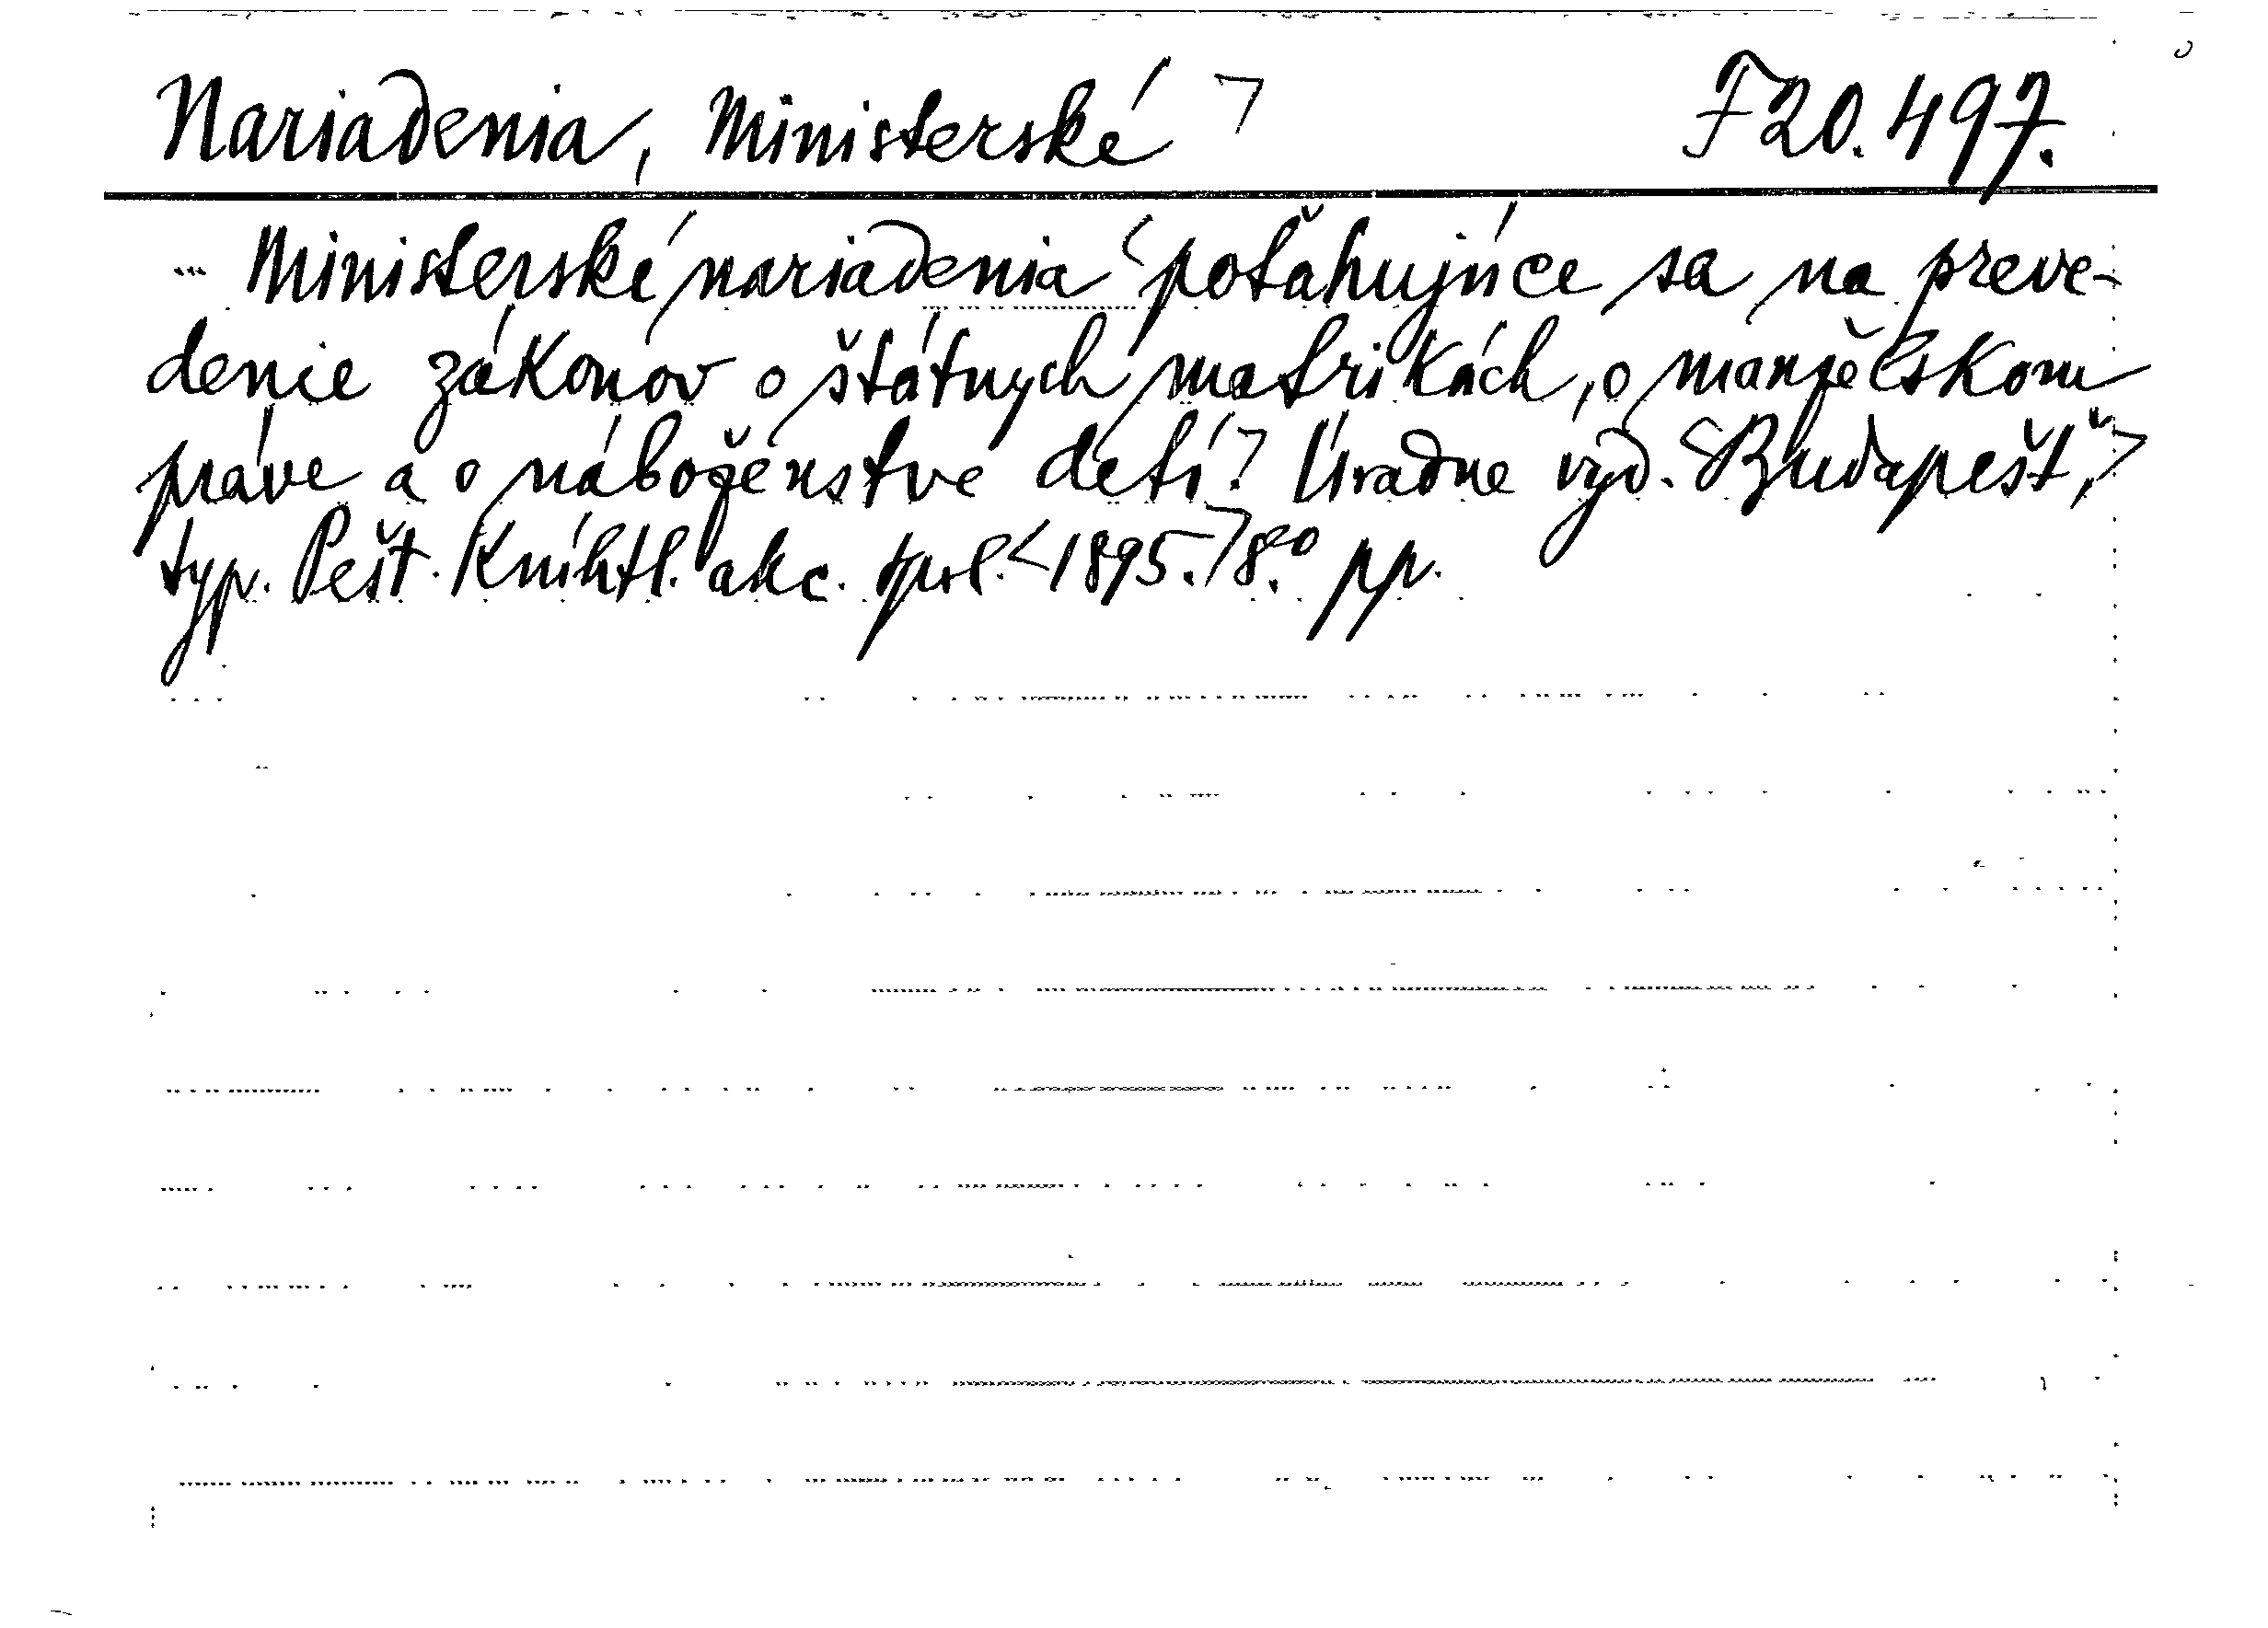 Nariadenia, Ministerské F20.497.
Ministerské nariadenia poťahujúce sa na preve-
denie zákonov o štátnych matrikách, o manželskom
práve a o náboženstve detí. Úradne vyd. Budapešť,
typ. Pešt. Kníhtl. akc. spol. 1895. 8.° pp.